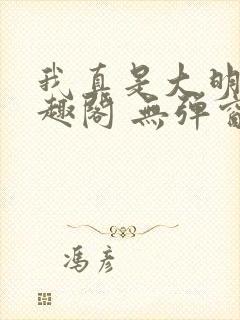 我真是大明
趣阁 無弹窗
冯彦